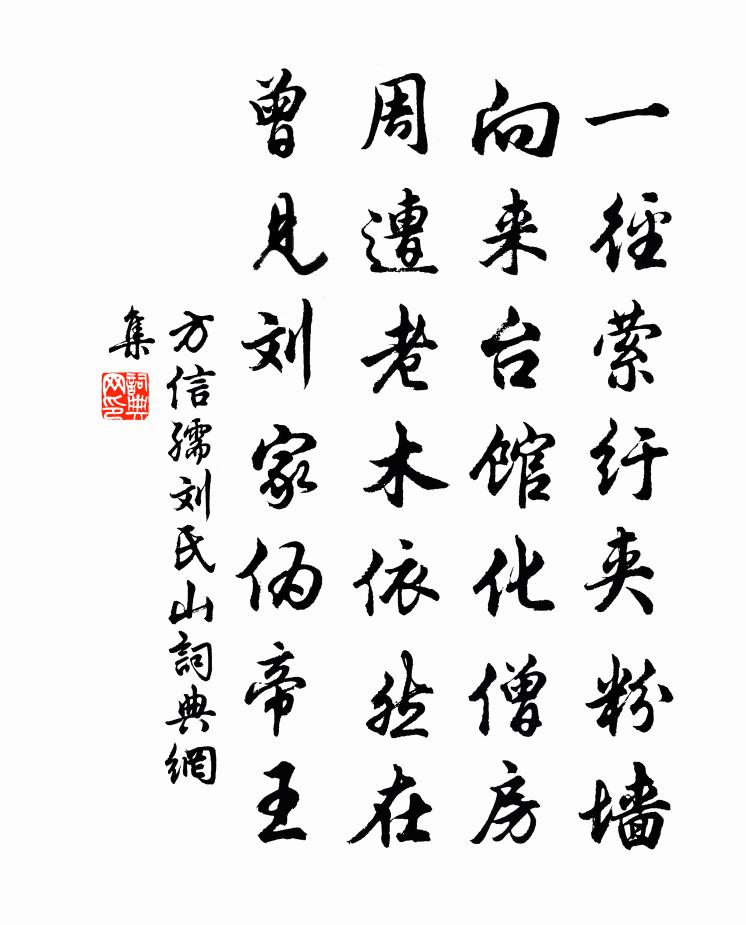 一径萦纡夹粉墙
向来台馆化僧房
周遭老木依然在
曾见刘家伪帝王
方信孺刘氏山詞典網
集
詞典网印